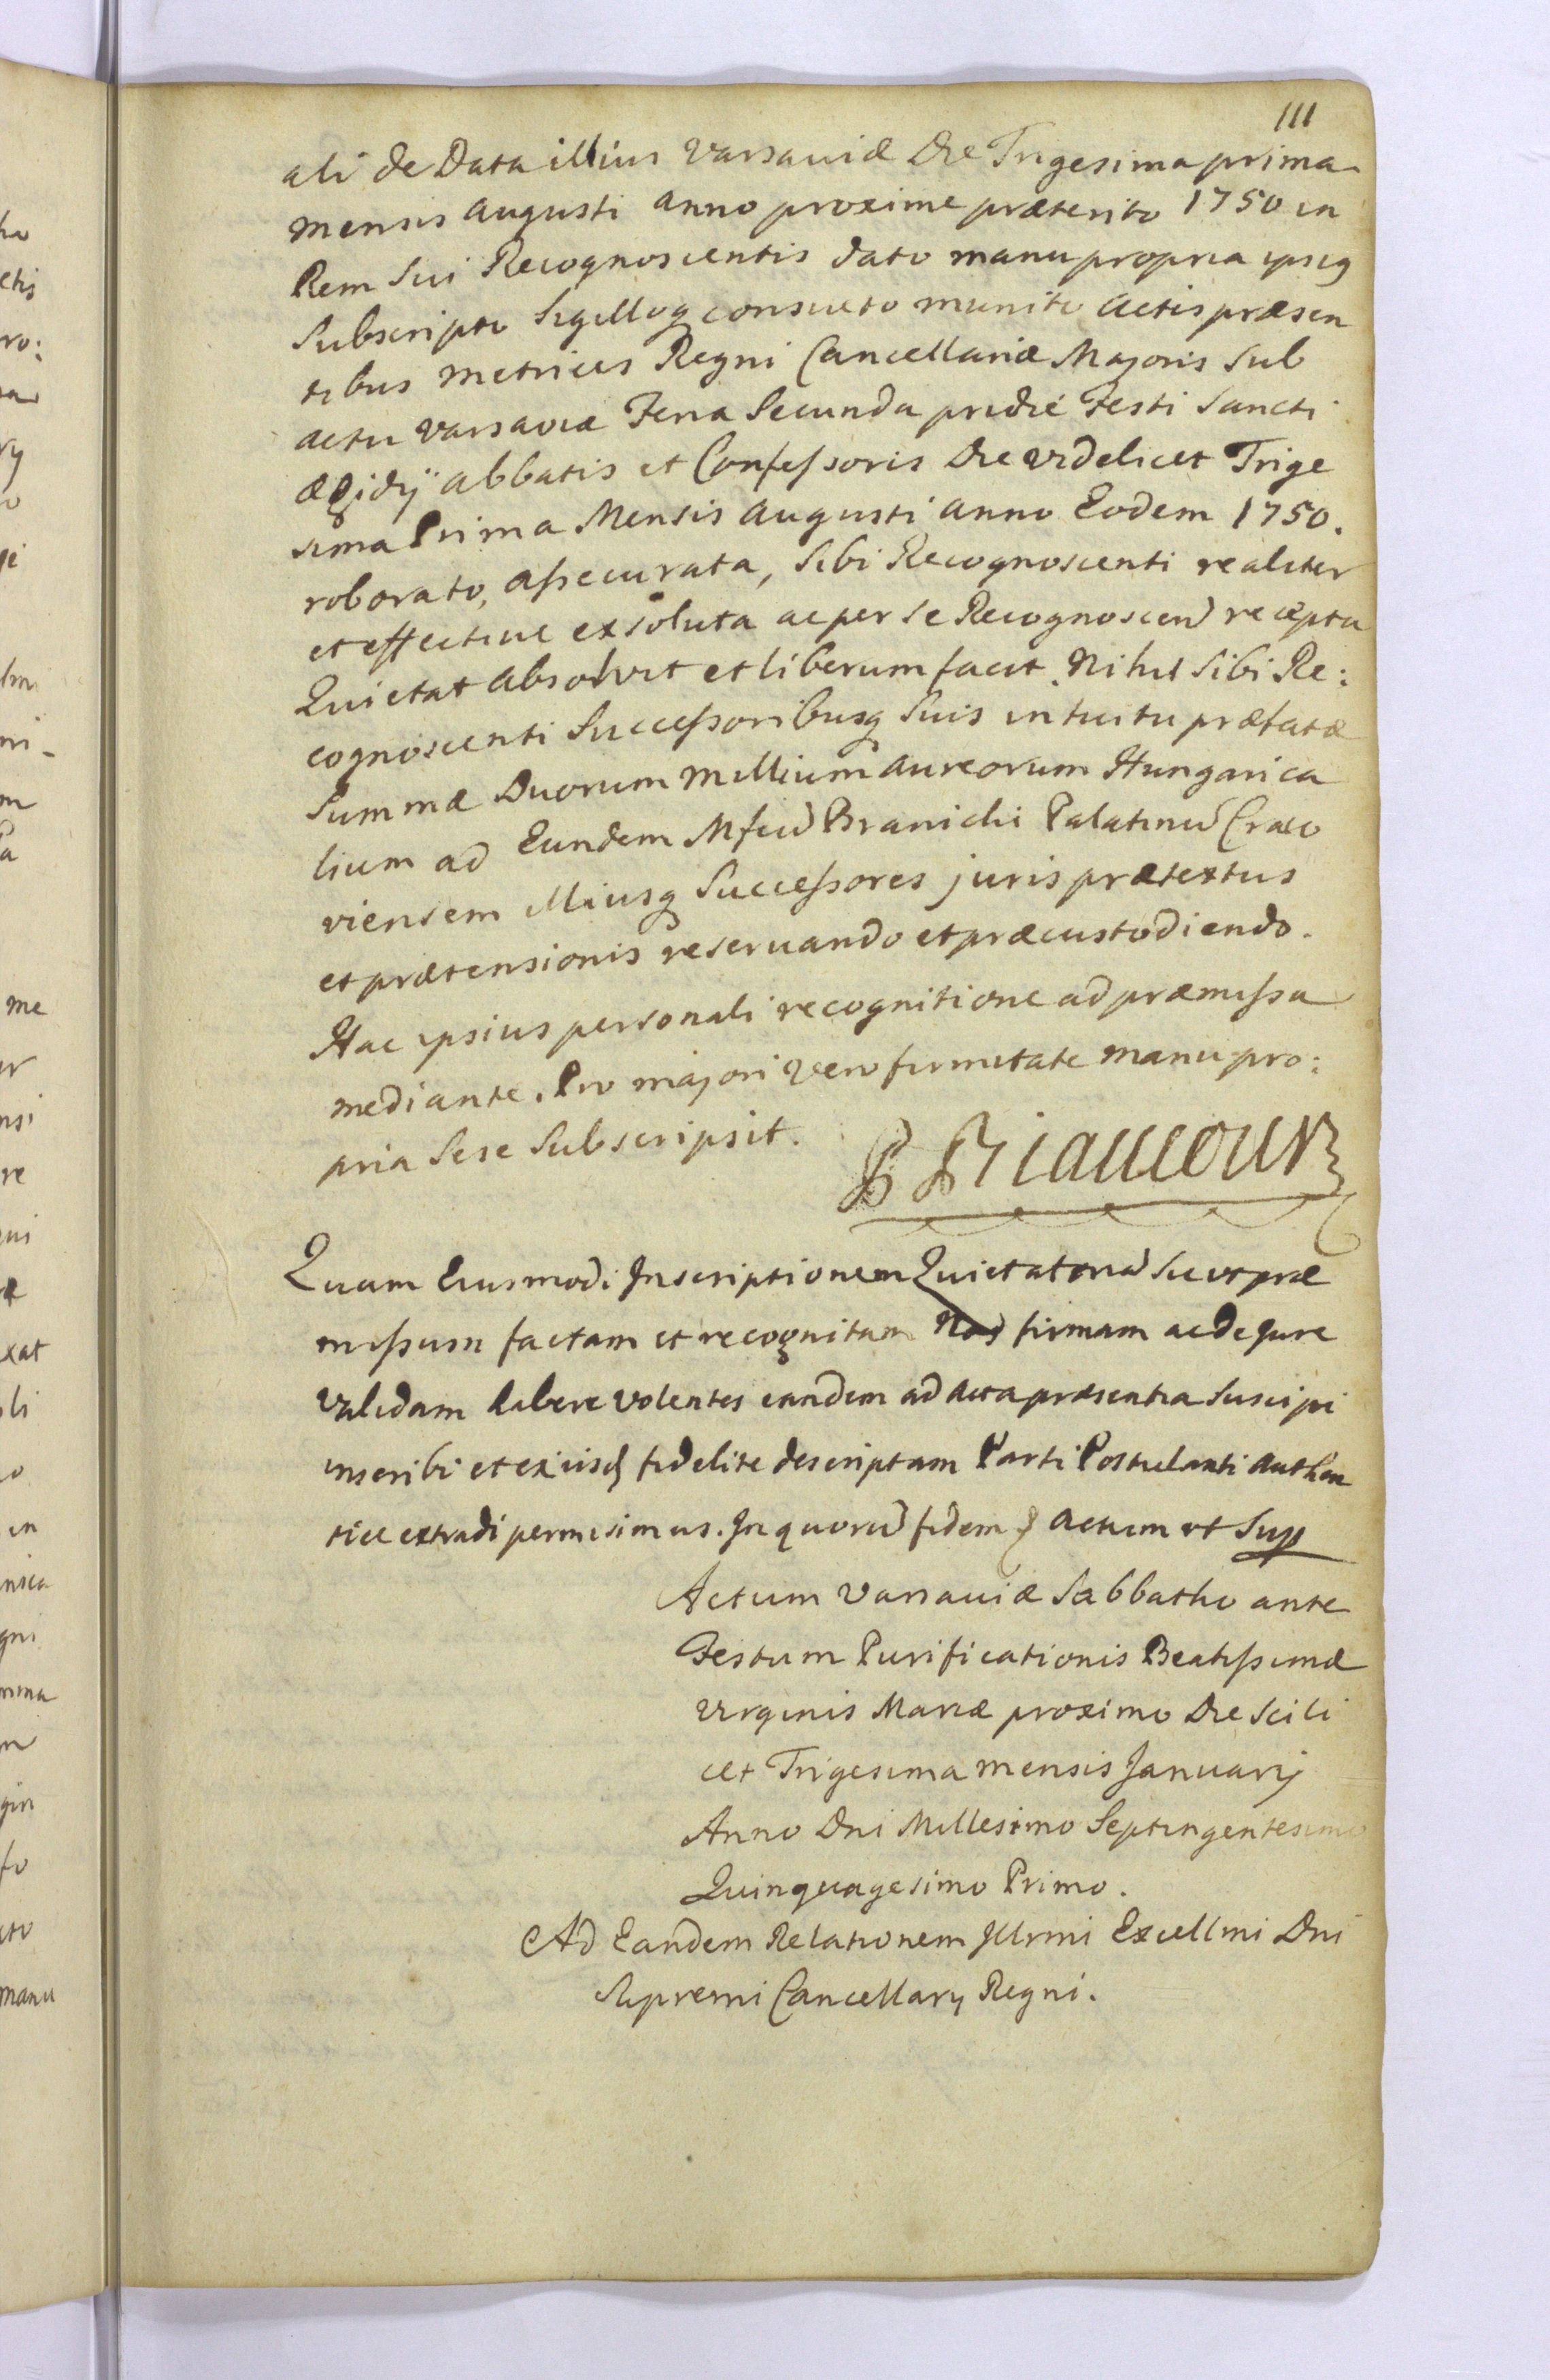 111
ali de Data illius Varsaviæ Die Trigesima prima
mensis Augusti anno proxime præterito 1750 in
Rem Sui Recognoscentis dato manu propria ipsig
Subscripto Sigilloq consueto munito Actis præsen
tibus Metrices Regni Cancellariæ Majoris Sub
actu Varsaviæ Feria Secunda pridie Festi Sancti
Ægidij Abbatis et Confessoris Die videlicet Trige
sima Prima Mensis Augusti Anno Eodem 1750.
roborato, assecurata, Sibi Recognoscenti realiter
et effective exsoluta ac per Se Recognoscen recepta
Quietat absolvit et liberum facit. Nihil Sibi Re:
cognoscenti Successoribusq Suis intuitu præfatæ
Summæ Duorum Millium Aureorum Hungarica
lium ad Eundem Mfcu Branicki Palatinu Craco
viensem illiusq Successores juris prætextus
et prætensionis reservando et præcustodiendo.
Hac ipsius personali recognitione ad præmissa
mediante. Pro majori vero firmitate manu pro:
pria Sese Subscripsit.
P Riaucour
Quam Eiusmodi Inscriptionem Quietatoria Sic ut præ
missum factam et recognitam Nos firmam ac de Jure
validam habere volentes eandem ad Acta præsentia Suscipi
inscribi et ex iisd fidelite descriptam Parti Postulanti authen
tice extradi permisimus. In quoru fidem Actum ut Sup
Actum Varsaviæ Sabbatho ante
Festum Purificationis Beatissimæ
Virginis Mariæ proximo Die Scili
cet Trigesima mensis Januarij
Anno Dni Millesimo Septingentesimo
Quinquagesimo Primo.
Ad Eandem Relationem Illrmi Excellmi Dni
Supremi Cancellarij Regni.